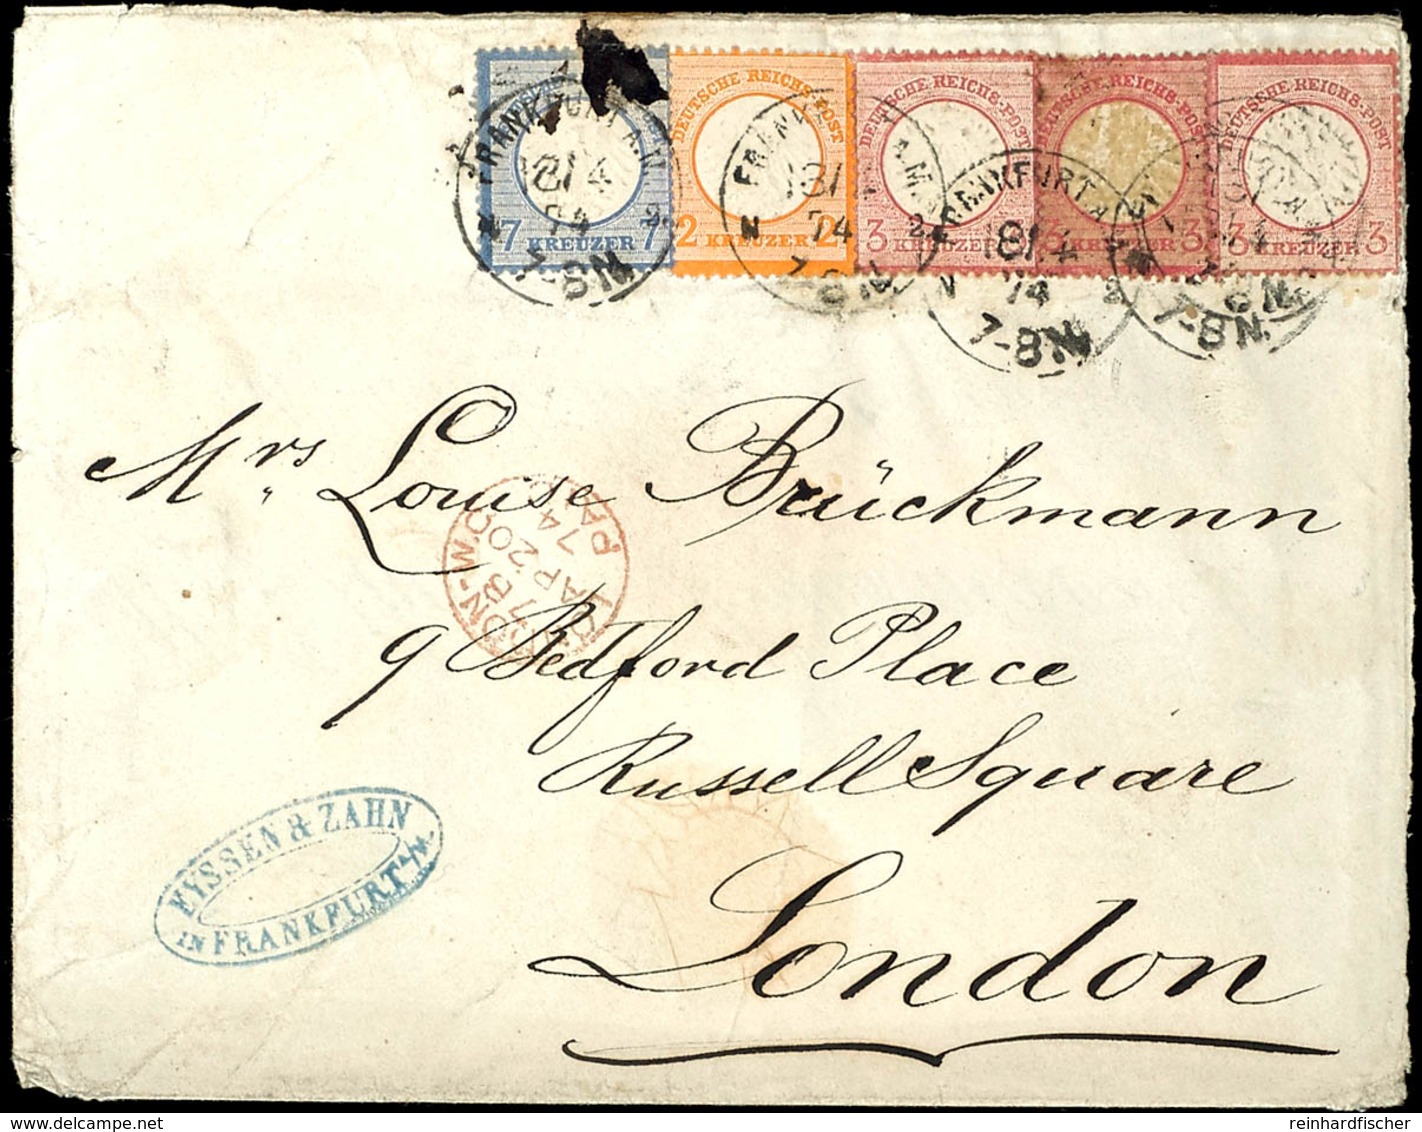 DEUTSCHE REICHS-POST
DEUTSCHE REICHS-POST
DEUTSCHE REICHS-POST
DEUTSCHE REICHS-POST
7 KREUZER 7
2 KREUZER 2
3 KREUZER 3
3 KREUZER 3
3 KREUZER 3
FRANKFURT A.M.
18/4
74
7-8N.
N 2
FRANKFURT A.M.
18/4
74
7-8N.
N 2
FRANKFURT A.
18/4
74
7-8N.
N 2
7-8N.
Mrs Louise Brückmann
LONDON-W.C
PAID
AP 20
74
9 Bedford Place
Russell Square
London
EYSSEN & ZAHN
IN FRANKFURT a/M.
reinhardfischer